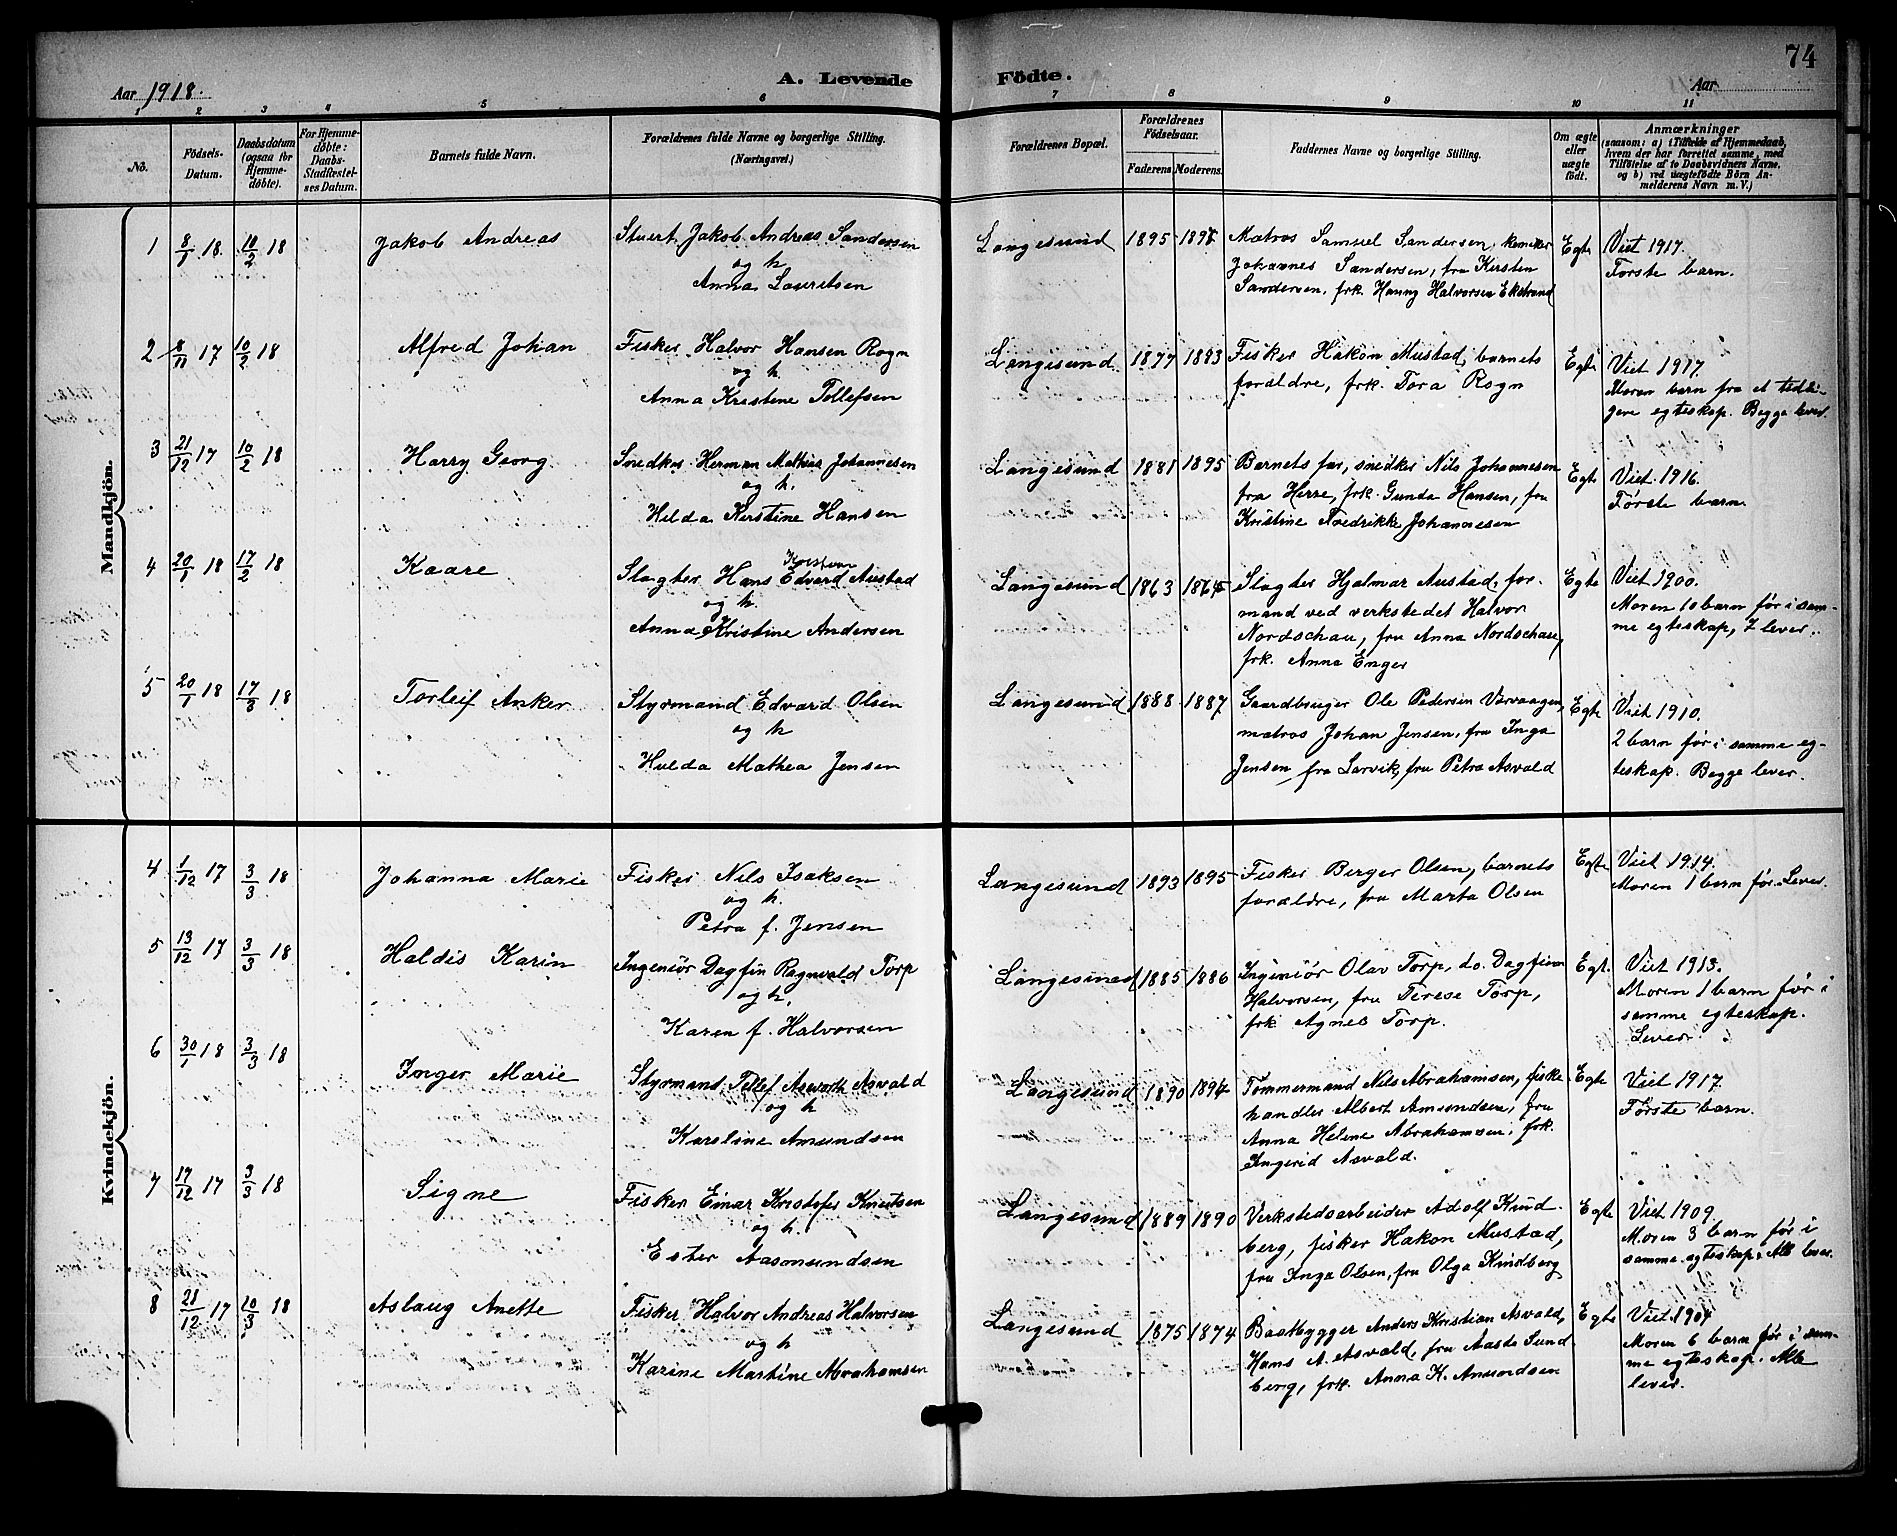 74
A. Levende Födte.
Aar 1918.
Aar
1 2 3 4 5 6 7 8 9 10 11
No.
Födsels-Datum.
Daabsdatum (ogsaa for Hjemme-döbte).
For Hjemme-döbte: Daabs-Stadfæstel-ses Datum.
Barnets fulde Navn.
Forældrenes fulde Navne og borgerlige Stilling. (Næringsvei.)
Forældrenes Bopæl.
Forældrenes Födselsaar.
Faderens. Moderens.
Faddernes Navne og borgerlige Stilling.
Om ægte eller uægte födt.
Anmærkninger
(saasom: a) i Tilfælde af Hjemmedaab, hvem der har forrettet samme, med Tilföielse af to Daabsvidners Navne, og b) ved uægtefödte Börn An-melderens Navn m. V.)
Mandkjön.
1 8/1 18 10/2 18 Jakob Andreas
Stuert Jakob Andreas Sandersen
og h.
Anna Lauritsen
Langesund 1895
Matros Samuel Sandersen,
Johannes Sandersen, fru Kirsten
Sandersen, frk. Hanny Halvorsen Ekstrand
Egte
Viet 1917.
Første barn.
2 8/11 17 10/2 18 Alfred Johan
Fisker Halvor Hansen Rogn
og h.
Anna Kristine Tellefsen
Langesund 1877 1883
Fisker Hakon Mustad, barnets
forældre, frk. Tora Rogn
Egte
Viet 1917.
Moren barn fra et tidli-
gere egteskap. Begge lever.
3 21/12 17 10/2 18 Harry Georg
Snedker Herman Mathias Johannesen
og h.
Hilda Kirstine Hansen
Langesund 1881 1895
Barnets far, snedker Nils Johannesen
fra Herre, frk. Gunda Hansen, fru
Kristine Fredrikke Johannesen
Egte
Viet 1916.
Første barn.
4 20/1 18 17/2 18 Kaare
Kristian
Slagter Hans Edvard Austad
og h.
Anna Kristine Andersen
Langesund 1863 1864
Slagter Hjalmar Austad, for-
mand ved verkstedet Halvor
Nordschau, fru Anna Nordschau,
frk. Anna Enger
Egte
Viet 1900.
Moren 10 barn før i sam-
me egteskap, 7 lever.
5 20/1 18 17/3 18 Torleif Anker
Styrmand Edvard Olsen
og h
Hulda Mathea Jensen
Langesund 1888 1887
Gaardbruger Ole Pedersen Vervaagen,
matros Johan Jensen, fru Inga
Jensen fra Larvik, fru Petra Asvald
Egte
Viet 1910.
2 barn før i samme eg-
teskap. Begge lever.
Kvindekjön.
4 1/12 17 3/3 18 Johanna Marie
Fisker Nils Isaksen
og h.
Petra f. Jensen
Langesund 1893 1895
Fisker Berger Olsen, barnets
forældre, fru Marta Olsen
Egte
Viet 1914.
Moren 1 barn før. Lever.
5 13/12 17 3/3 18 Haldis Karin
Ingeniör Dagfin Ragnvald Torp
og h.
Karen f. Halvorsen
Langesund 1885 1886
Ingeniör Olav Torp, do. Dagfinn
Halvorsen, fru Terese Torp,
frk Agnes Torp.
Egt.
Viet 1913.
Moren 1 barn før i
samme egteskap.
Lever.
6 30/1 18 3/3 18 Inger Marie
Styrmand Tellef Asworth Asvald
og h
Karoline Amundsen
Langesund 1890 1894
Tømmermand Nils Abrahamsen, fiske
handler Albert Amundsen, fru
Anna Helene Abrahamsen, frk.
Ingerid Asvald.
Egte
Viet 1917.
Første barn.
7 17/12 17 3/3 18 Signe
Fisker Einar Kristofer Knutsen
og h.
Ester Aasmundsen
Langesund 1889 1890
Verkstedsarbeider Adolf Kind-
berg, fisker Hakon Mustad,
fru Inga Olsen, fru Olga Kindberg
Egte
Viet 1909.
Moren 3 barn før i
samme egteskap. Alle lever.
8 21/12 17 10/3 18 Aslaug Anette
Fisker Halvor Andreas Halvorsen
og h
Karine Martine Abrahamsen
Langesund 1875 1874
Baatbygger Anders Kristian Asvald,
Hans A. Asvald, fru Aasta Sund
berg, frk. Anna K. Amundsen
Egte
Viet
Moren 6 barn før i sam-
me egteskap. Alle
lever.